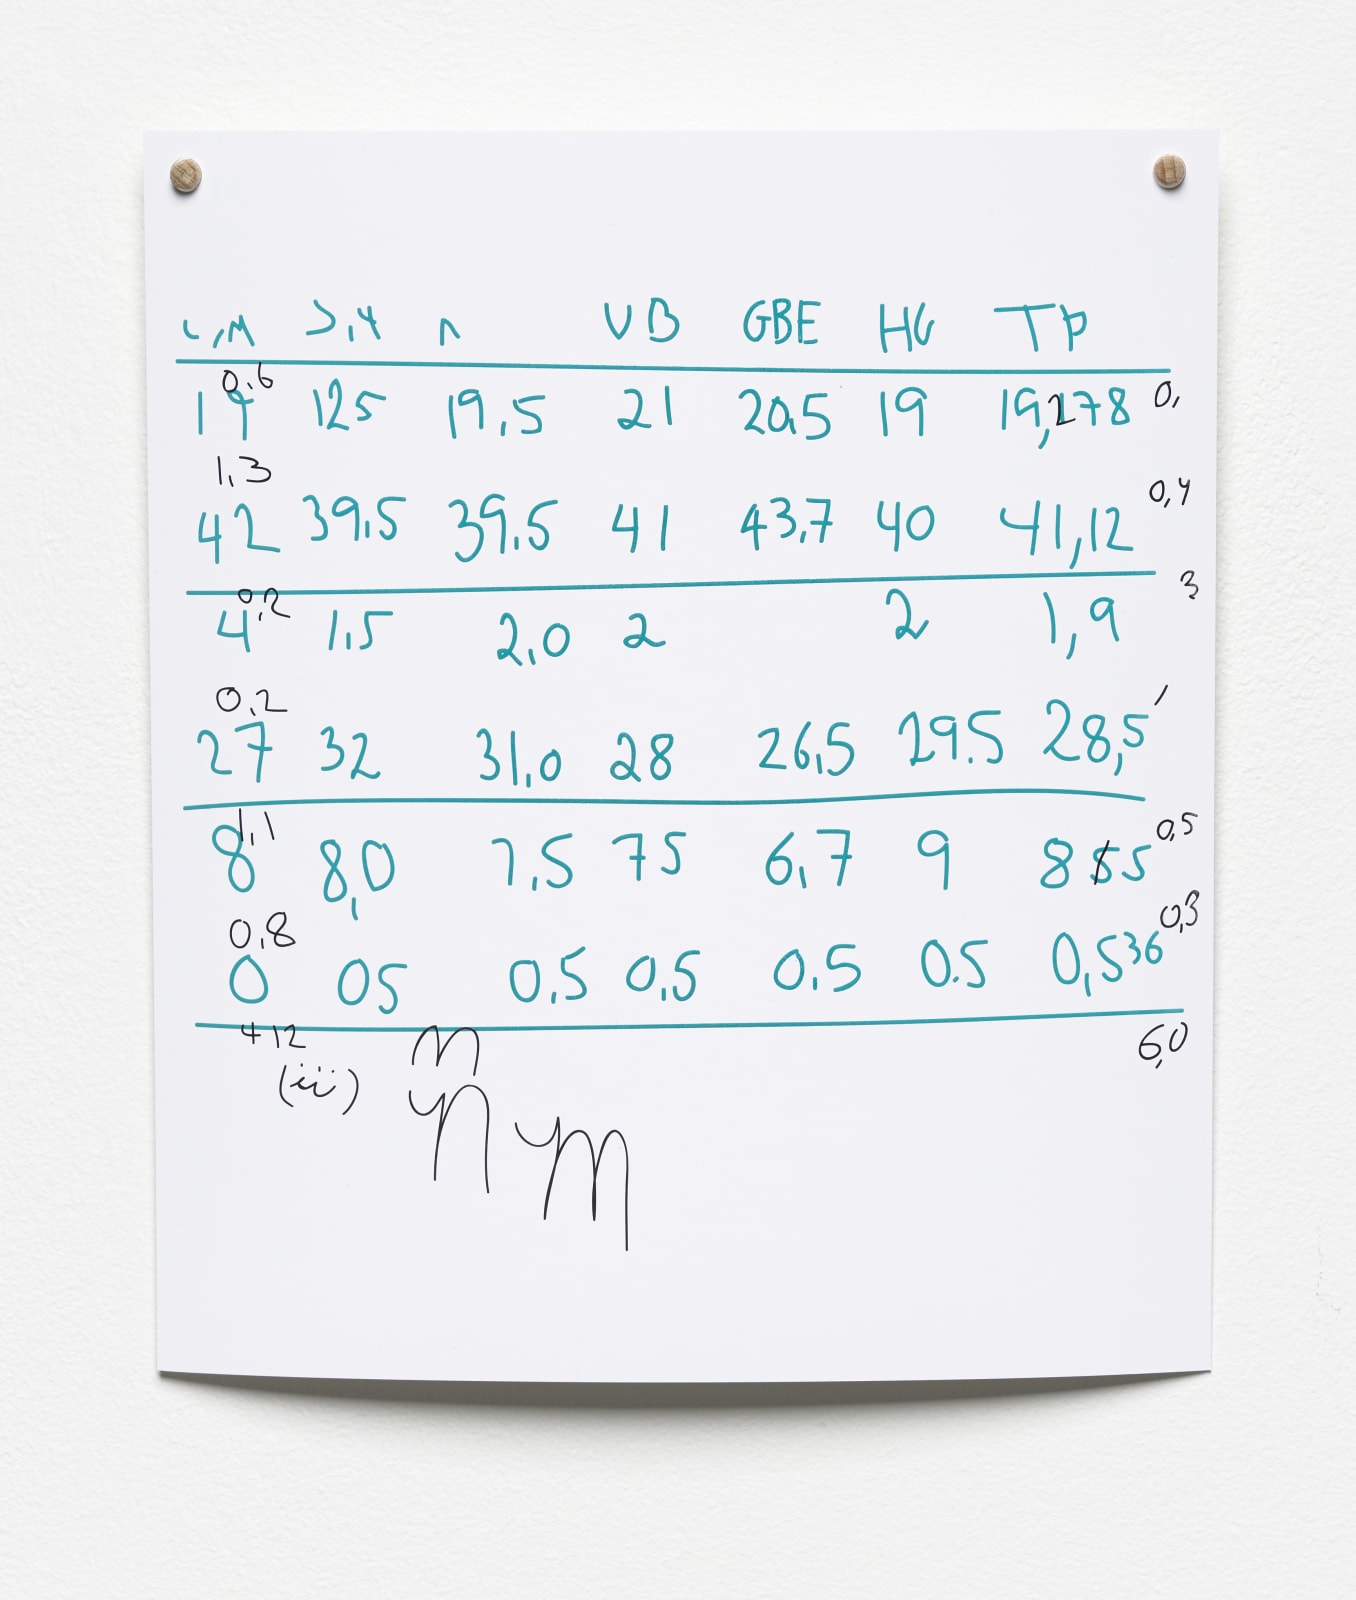 VB GBE HG TP
0,6
19 125 19.5 21 20.5 19 19,278 0,
1,3
42 39.5 39.5 41 43,7 40 41,12 0,4
0,2
4 1.5 2.0 2 2 1,9 3
0,2
27 32 31.0 28 26,5 29.5 28,5
1,1
8 8,0 7.5 75 6,7 9 8 5 0,5
0,8
0 05 0.5 0,5 0.5 0.5 0,536 0,3
412 6,0
(iii)